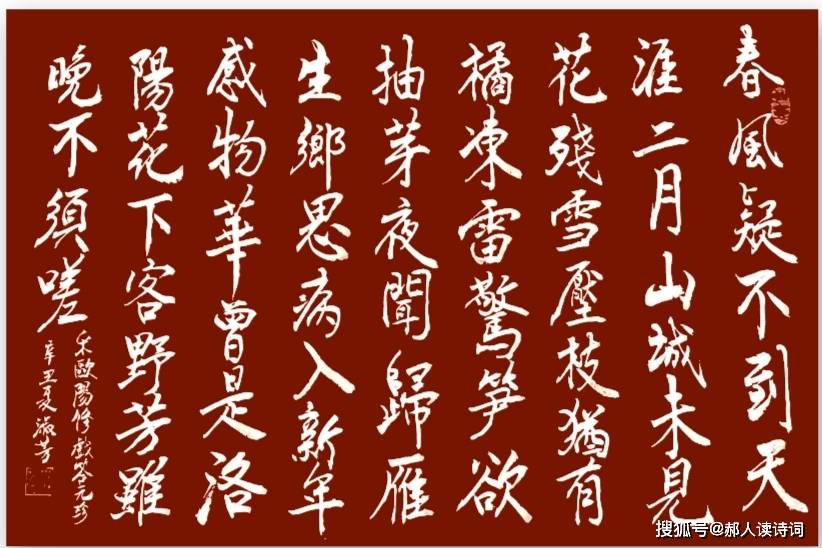 春風疑不到天
涯二月山城未見
花殘雪壓枝猶有
橘凍雷驚笋欲
抽芽夜聞歸雁
生鄉思病入新年
感物華曾是洛
陽花下客野芳雖
晚不須嗟
宋歐陽修戲答元珍
辛丑夏
搜狐号@郝人读诗词